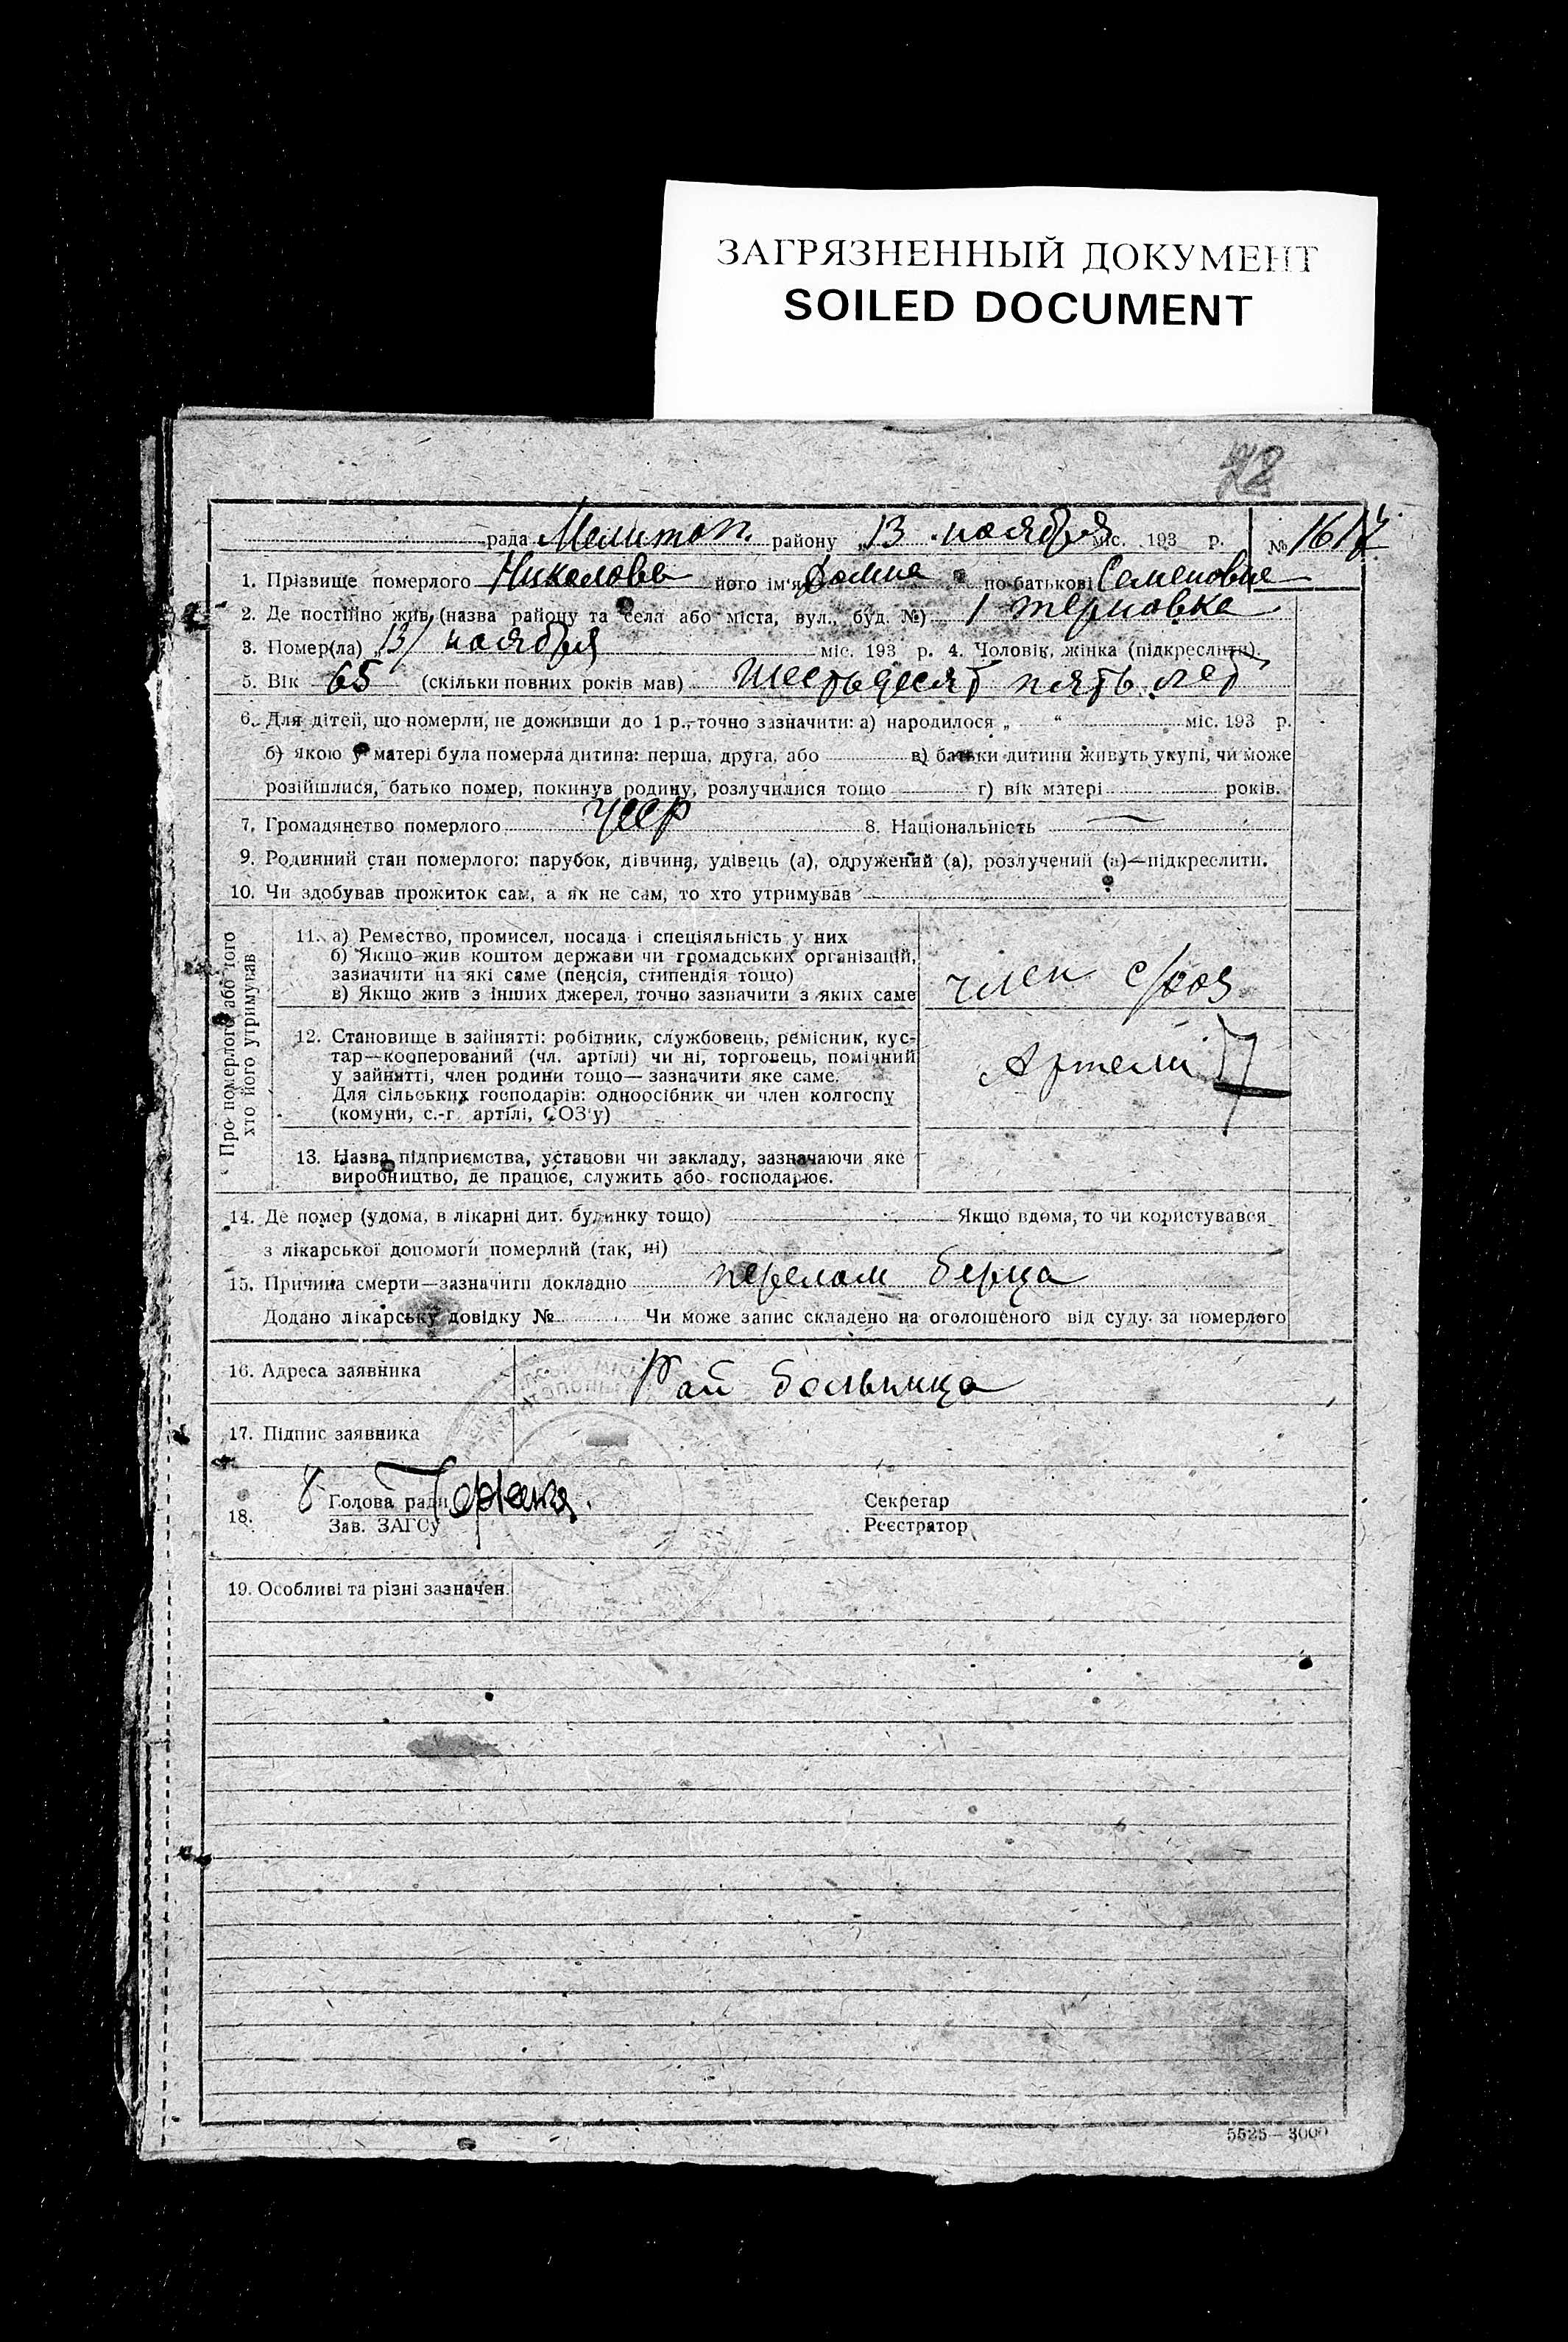 ЗАГРЯЗНЕННЫЙ ДОКУМЕНТ
SOILED DOCUMENT
рада Мелитоп. району „13 ноября міс. 193 р. №
1. Прізвище померлого Николова його ім'я Домна по батькові Семеновна
2. Де постійно жив (назва району та села або міста, вул., буд. №) 1 терновка
3. Помер(ла) „13 ноября міс. 193 р. 4. Чоловік, жінка (підкреслити).
5. Вік 65 (скільки повних років мав) шестьдесят пять лет
6. Для дітей, що померли, не доживши до 1 р., точно зазначити: а) народилося „ “ міс. 193 р.
б) якою у матері була померла дитина: перша, друга, або в) батьки дитини живуть укупі, чи може
розійшлися, батько помер, покинув родину, розлучилися тощо г) вік матері років.
7. Громадянство померлого УССР 8. Національність —
9. Родинний стан померлого: парубок, дівчина, удівець (а), одружений (а), розлучений (а)—підкреслити.
10. Чи здобував прожиток сам, а як не сам, то хто утримував
Про померлого або того
хто його утримував
11. а) Ремество, промисел, посада і спеціяльність у них
б) Якщо жив коштом держави чи громадських організацій,
зазначити на які саме (пенсія, стипендія тощо)
в) Якщо жив з інших джерел, точно зазначити з яких саме
член с/хоз
12. Становище в зайнятті: робітник, службовець, ремісник, кус-
тар—кооперований (чл. артілі) чи ні, торговець, помічний
у зайнятті, член родини тощо— зазначити яке саме.
Для сільських господарів: одноосібник чи член колгоспу
(комуни, с.-г. артілі, СОЗ'у)
Артели
13. Назва підприємства, установи чи закладу, зазначаючи яке
виробництво, де працює, служить або господарює.
14. Де помер (удома, в лікарні дит. будинку тощо) Якщо вдома, то чи користувався
з лікарської допомоги померлий (так, ні)
15. Причина смерти—зазначити докладно перелом берца
Додано лікарську довідку № Чи може запис складено на оголошеного від суду за померлого
16. Адреса заявника Рай больница
17. Підпис заявника
18. Голова ради Секретар
Зав. ЗАГСу Реєстратор
19. Особливі та різні зазначен.
5525—3000